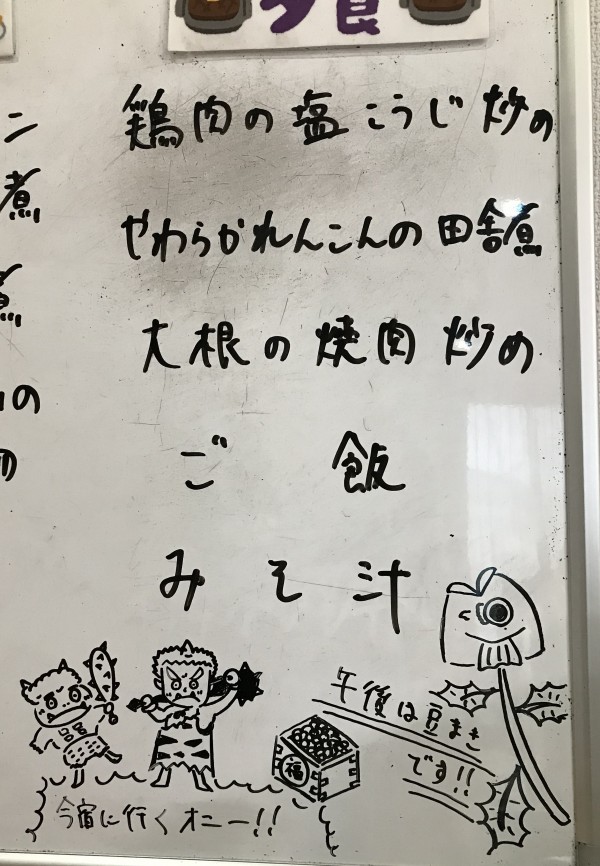 夕食
鶏肉の塩こうじ炒め
やわらかれんこんの田舎煮
大根の焼肉炒め
ご飯
みそ汁
午後は豆まき
です!!
福
今宿に行くオニー!!
ン
煮
煮
の